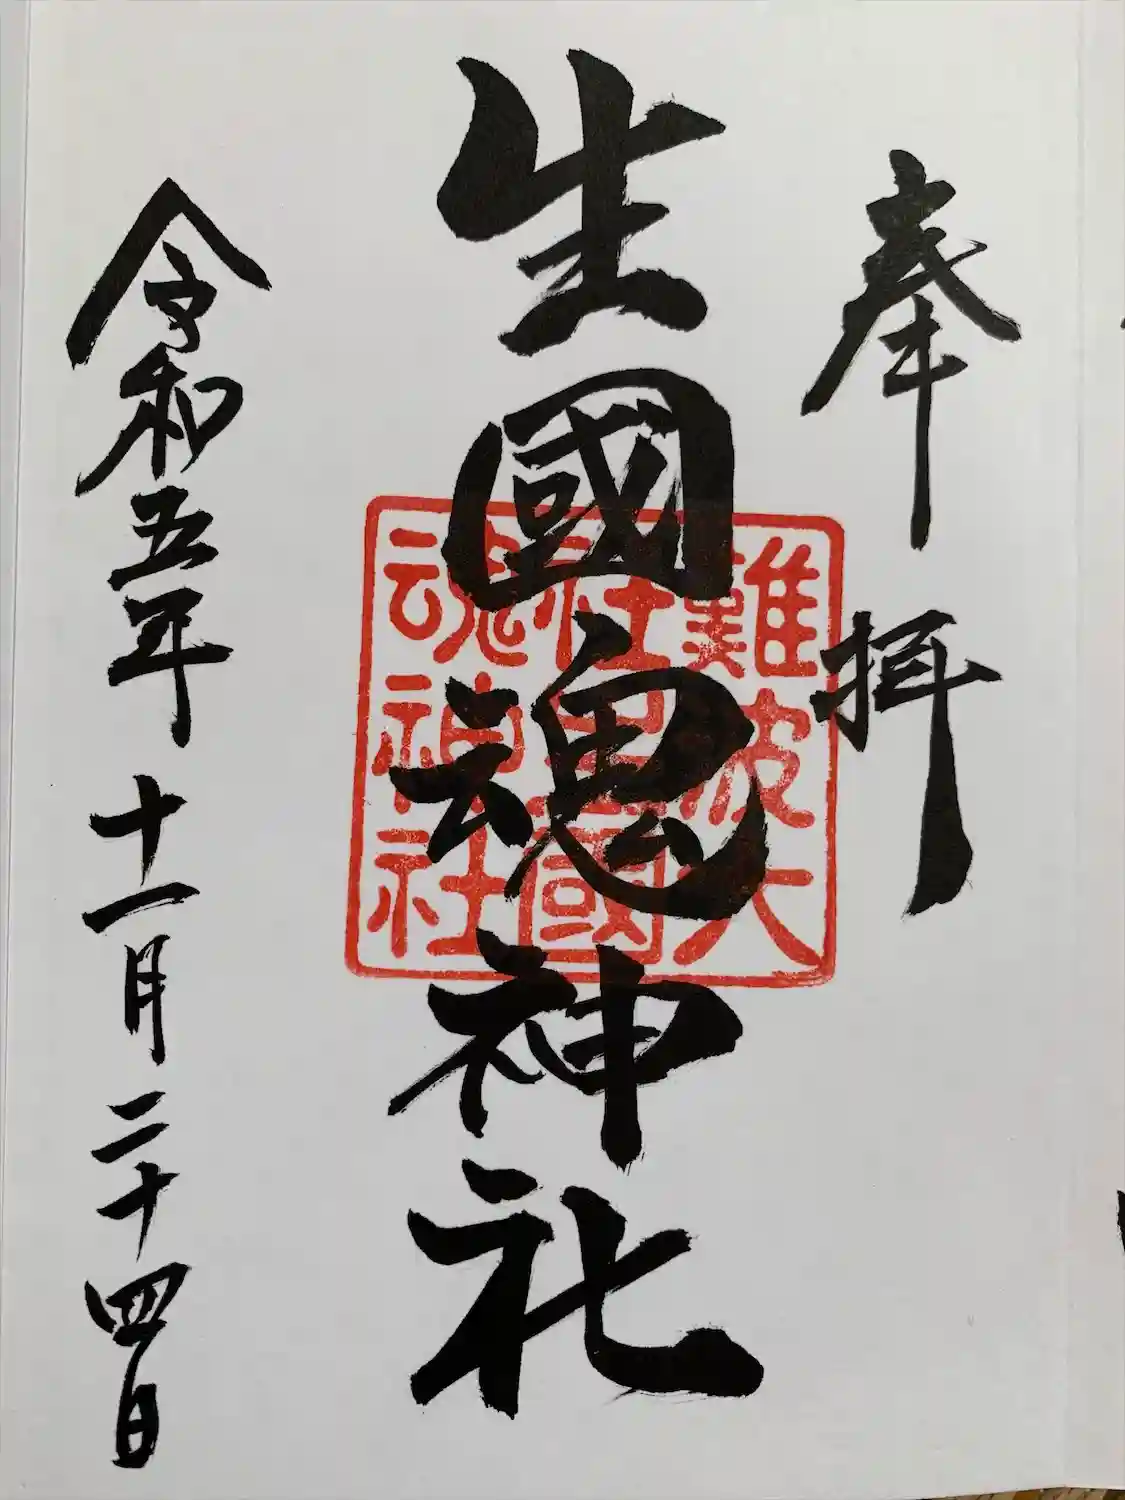 奉拝
生國魂神社
難波大
社生國
魂神社
令和五年十一月二十四日